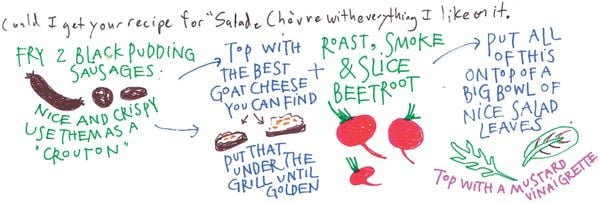 Could I get your recipe for "Salade Chèvre with everything I like on it.
FRY 2 BLACK PUDDING
SAUSAGES:
NICE AND CRISPY
USE THEM AS A
"CROUTON"
TOP WITH
THE BEST
GOAT CHEESE
YOU CAN FIND
PUT THAT
UNDER THE
GRILL UNTIL
GOLDEN
+
ROAST, SMOKE
& SLICE
BEETROOT
PUT ALL
OF THIS
ON TOP OF A
BIG BOWL OF
NICE SALAD
LEAVES
TOP WITH A MUSTARD
VINAIGRETTE